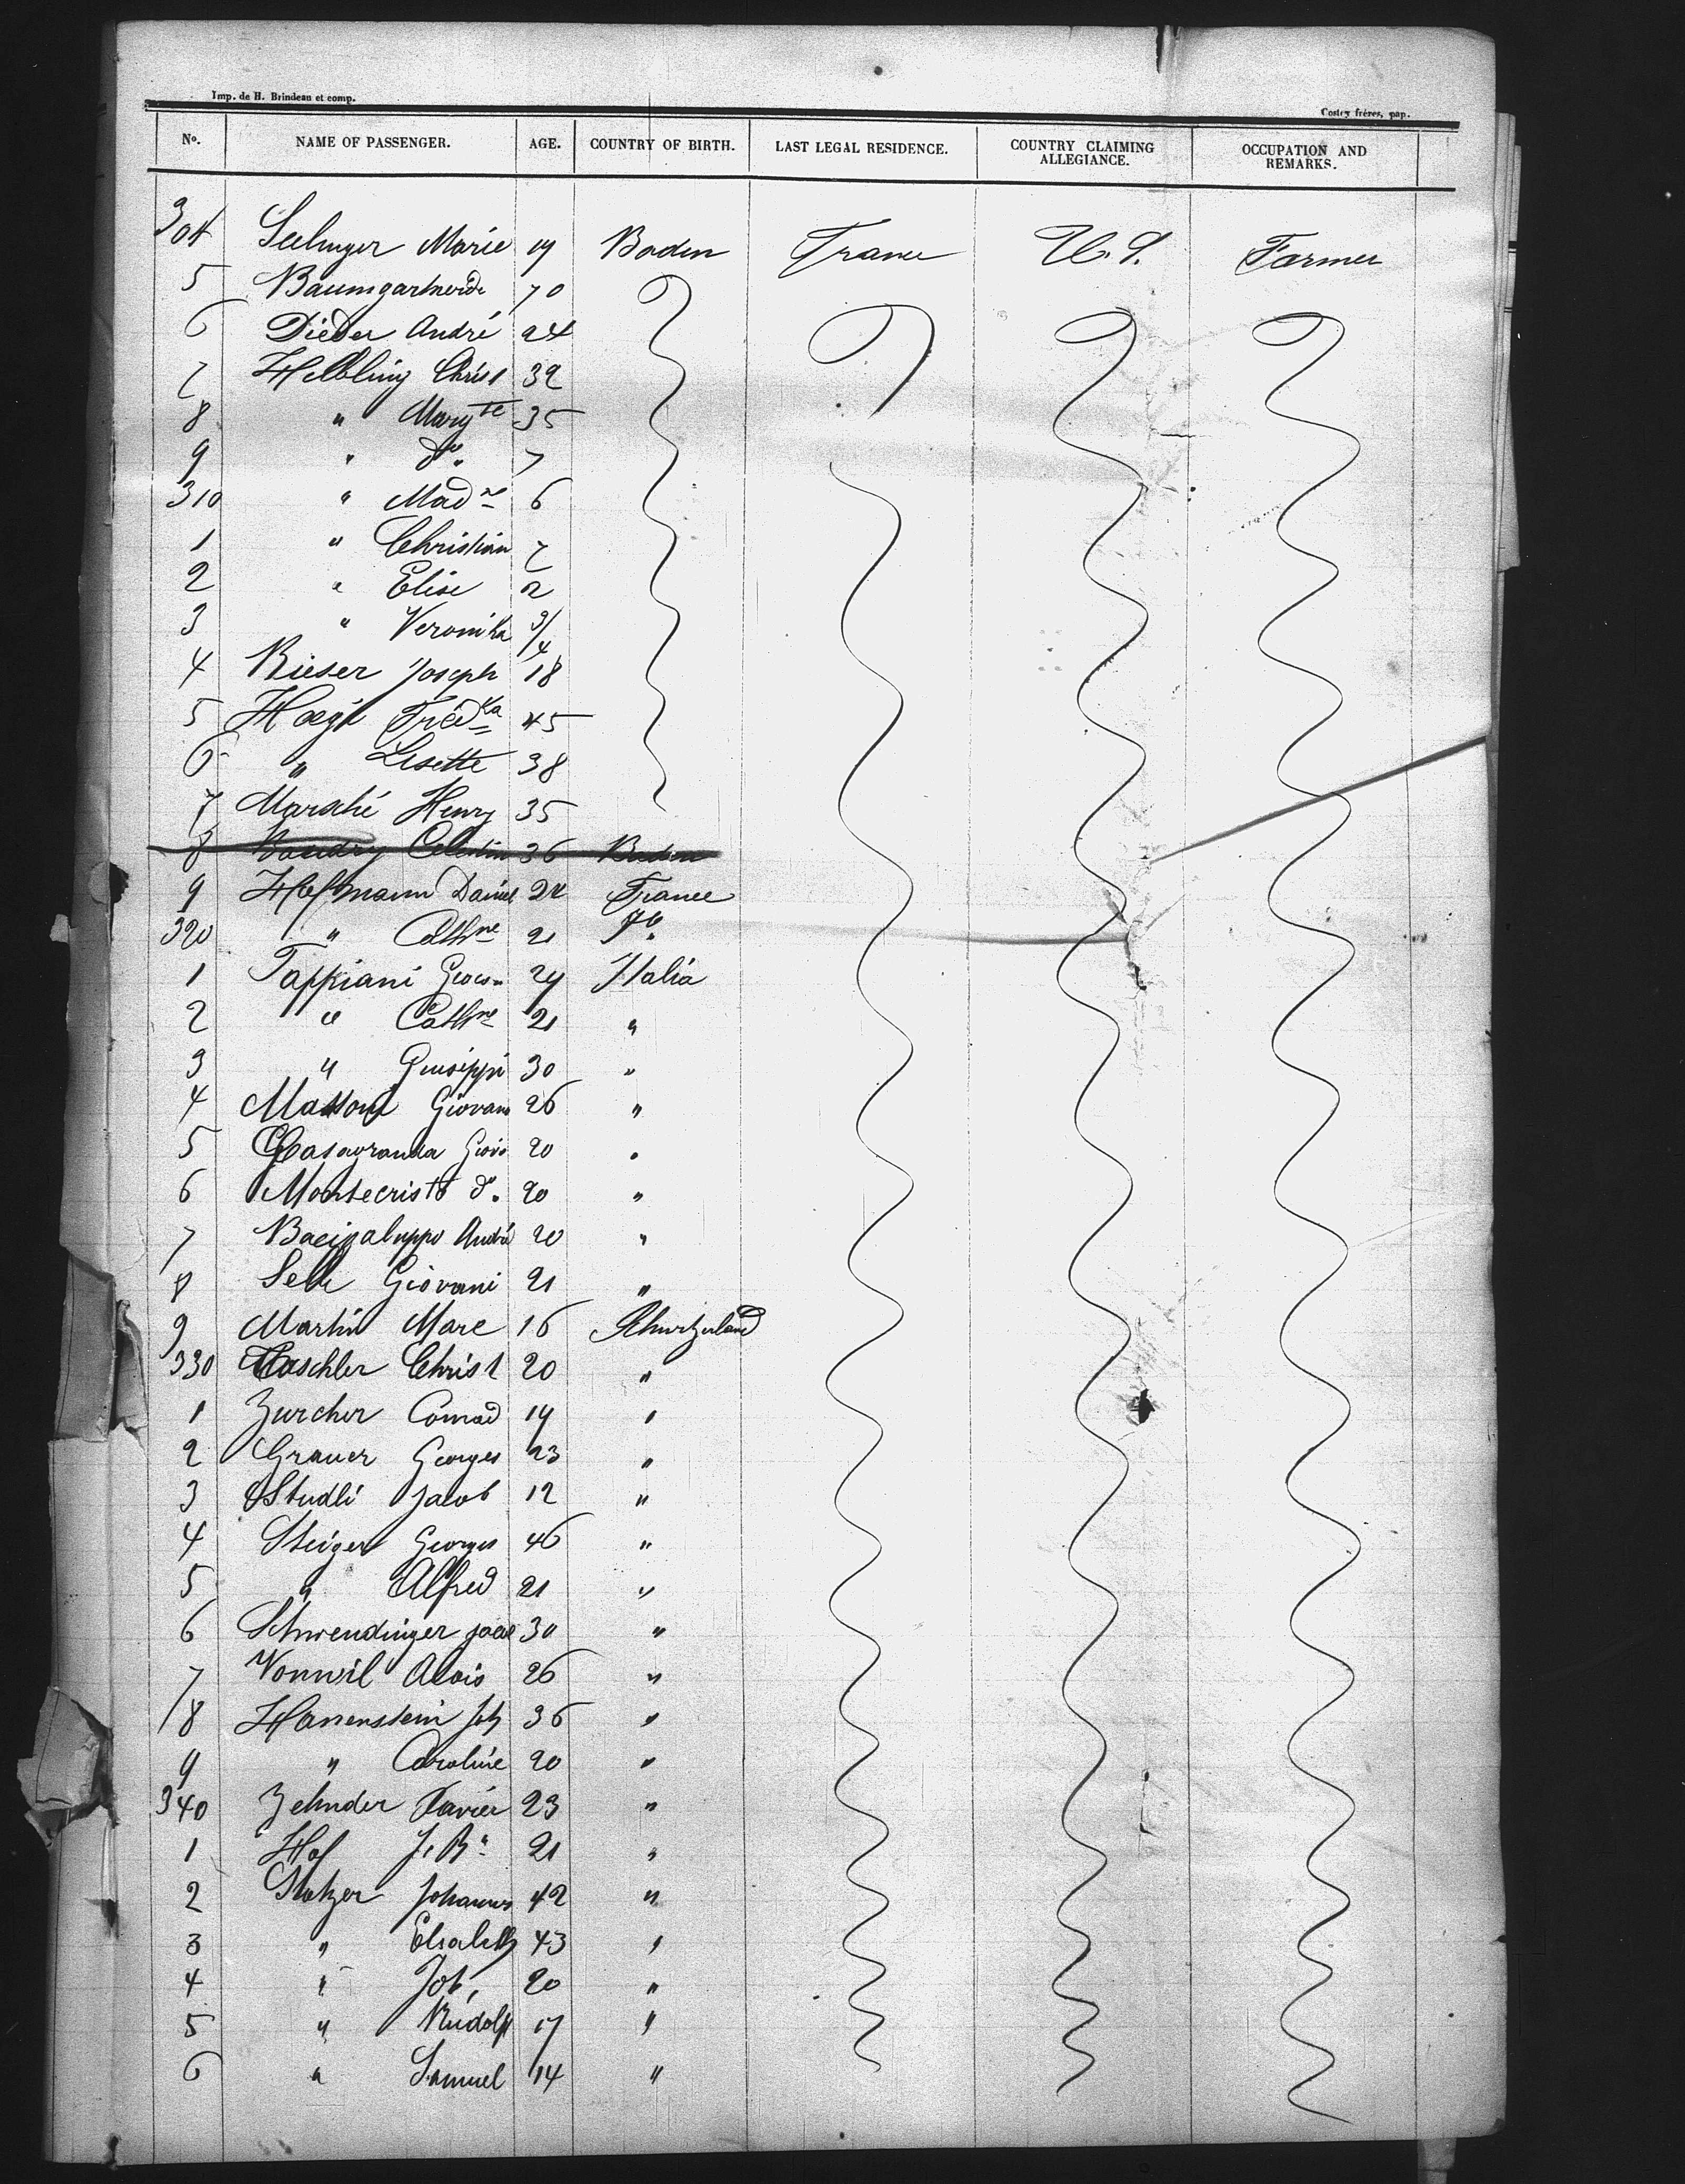 Imp. de H. Brindeau et comp.
Costey frères, pap.
No. NAME OF PASSENGER. AGE. COUNTRY OF BIRTH. LAST LEGAL RESIDENCE. COUNTRY CLAIMING ALLEGIANCE. OCCUPATION AND REMARKS.
304 Marie 19 Baden France U.S. Farmer
5 70
6 Dieder André 24
7 Helbling Christ 32
8 " Marg.te 35
9 " do. 7
310 " Mad.ne 6
1 " Christian
2 " Elise 2
3 " Veronika 3/4
4 Rieser Joseph 18
5 Hægi 45
6 " Lisette 38
7 Henry 35
8 Celestin 36 Baden
9 Hoffmann Daniel 24 France
320 " Cathne 21
1 Tappiani 24 Italia
2 " Cathne 21 "
3 " Giuseppi 30 "
4 Giovani 26 "
5 Casagranda Giov 20 "
6 Montecristo do. 20 "
7 Bacigaluppo André 20 "
8 Giovani 21 "
9 Martin Marc 16
330 Christ 20 "
1 Zurcher Conrad 19 "
2 Grauer Georges 23 "
3 Studli Jacob 12 "
4 Steiger Georges 46 "
5 " Alfred 21 "
6 Schwendinger 30 "
7 Vonwil Alois 26 "
8 Hanenstein Joh 36 "
9 " Caroline 20 "
340 Zehnder Xavier 23 "
1 Hof 21 "
2 Johannes 42 "
3 " Elisabeth 43 "
4 " Joh, 20 "
5 " Rudolf 17 "
6 " Samuel 14 "